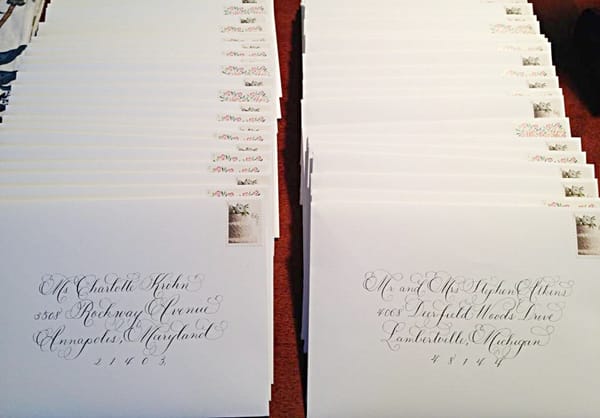 Ms Charlotte Krohn
3508 Rockway Avenue
Annapolis, Maryland
21403
Mr and Mrs Stephen Atkins
4008 Deerfield Woods Drive
Lambertville, Michigan
48144